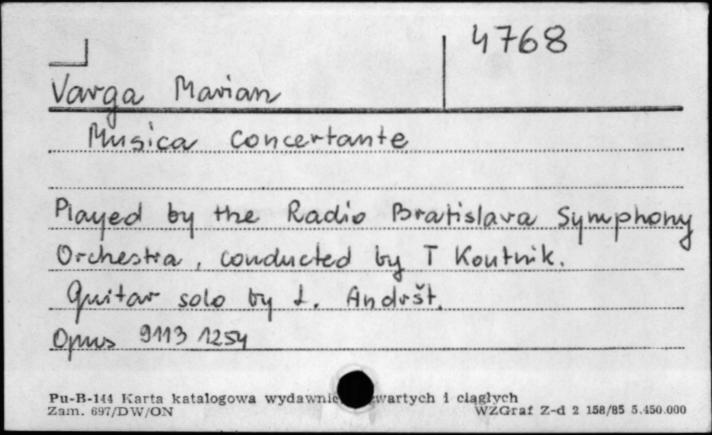 4768
Varga Marian
Musica concertante
Played by the Radio Bratislava Symphony
Orchestra, conducted by T Koutnik.
Guitar solo by L. Andršt.
Opus 9113 1254
Pu-B-144 Karta katalogowa wydawnic wartych i ciągłych
Zam. 697/DW/ON WZGraf Z-d 2 158/85 5.450.000